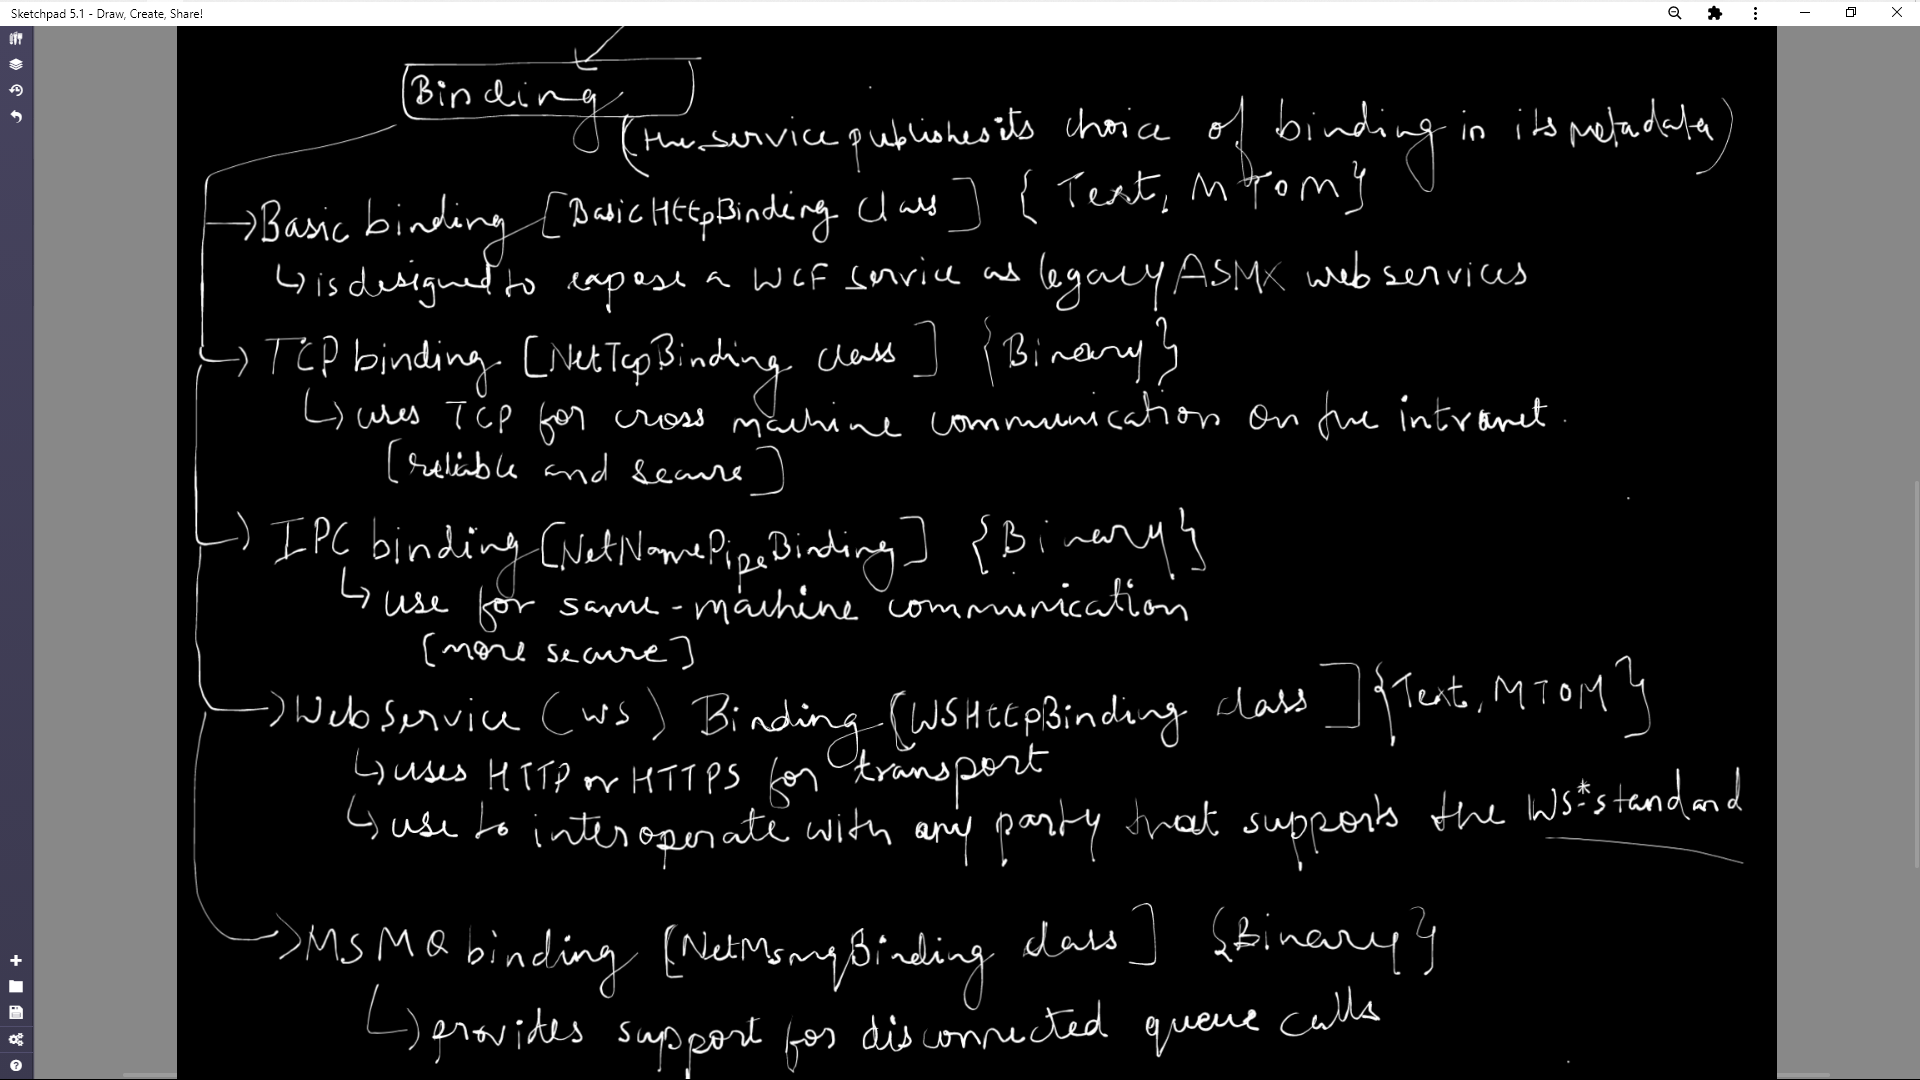 Sketchpad 5.1 - Draw, Create, Share!
Binding
(the service publishes its choice of binding in its metadata)
Basic binding [BasicHttpBinding class] {Text, MTOM}
is designed to expose a WCF service as legacy ASMX web services
TCP binding [NetTcpBinding class] {Binary}
uses TCP for cross machine communication on the intranet.
[reliable and secure]
IPC binding [NetNamePipeBinding] {Binary}
use for same-machine communication
[more secure]
Web Service (WS) Binding [WSHttpBinding class] {Text, MTOM}
uses HTTP or HTTPS for transport
use to interoperate with any party that supports the WS-*standard
MSMQ binding [NetMsmqBinding class] {Binary}
provides support for disconnected queue calls